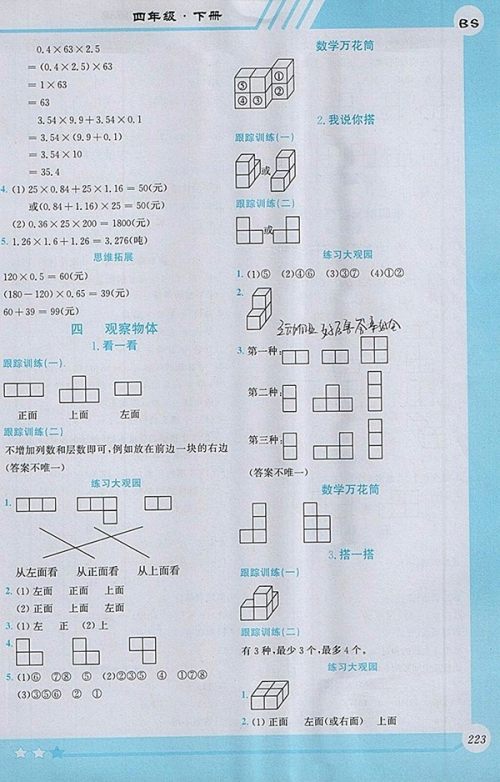 四年级·下册
BS
0.4×63×2.5
=(0.4×2.5)×63
=1×63
=63
3.54×9.9+3.54×0.1
=3.54×(9.9+0.1)
=3.54×10
=35.4
4.(1)25×0.84+25×1.16=50(元)
或(0.84+1.16)×25=50(元)
(2)0.36×25×200=1800(元)
5. 1.26×1.6+1.26=3.276(吨)
思维拓展
120×0.5=60(元)
(180-120)×0.65=39(元)
60+39=99(元)
四 观察物体
1.看一看
跟踪训练(一)
正面 上面 左面
跟踪训练(二)
不增加列数和层数即可,例如放在前边一块的右边
(答案不唯一)
练习大观园
1.
从左面看 从正面看 从上面看
2.(1)左面 正面 上面
(2)正面 上面 左面
3.(1)左 正 (2)上
4.
5.(1)⑥ ⑦⑧ ⑤ (2)②③⑤ ④ ①⑦⑧
(3)③⑤⑥ ② ①
数学万花筒
⑤ ① ② ④ ③
2.我说你搭
跟踪训练(一)
或
跟踪训练(二)
或
练习大观园
1.(1)⑤ (2)④⑥ (3)③⑦ (4)①②
2.
3.第一种:
第二种:
第三种:
(答案不唯一)
数学万花筒
3.搭一搭
跟踪训练(一)
跟踪训练(二)
有3种,最少3个,最多4个。
练习大观园
1.
2.(1)正面 左面(或右面) 上面
223